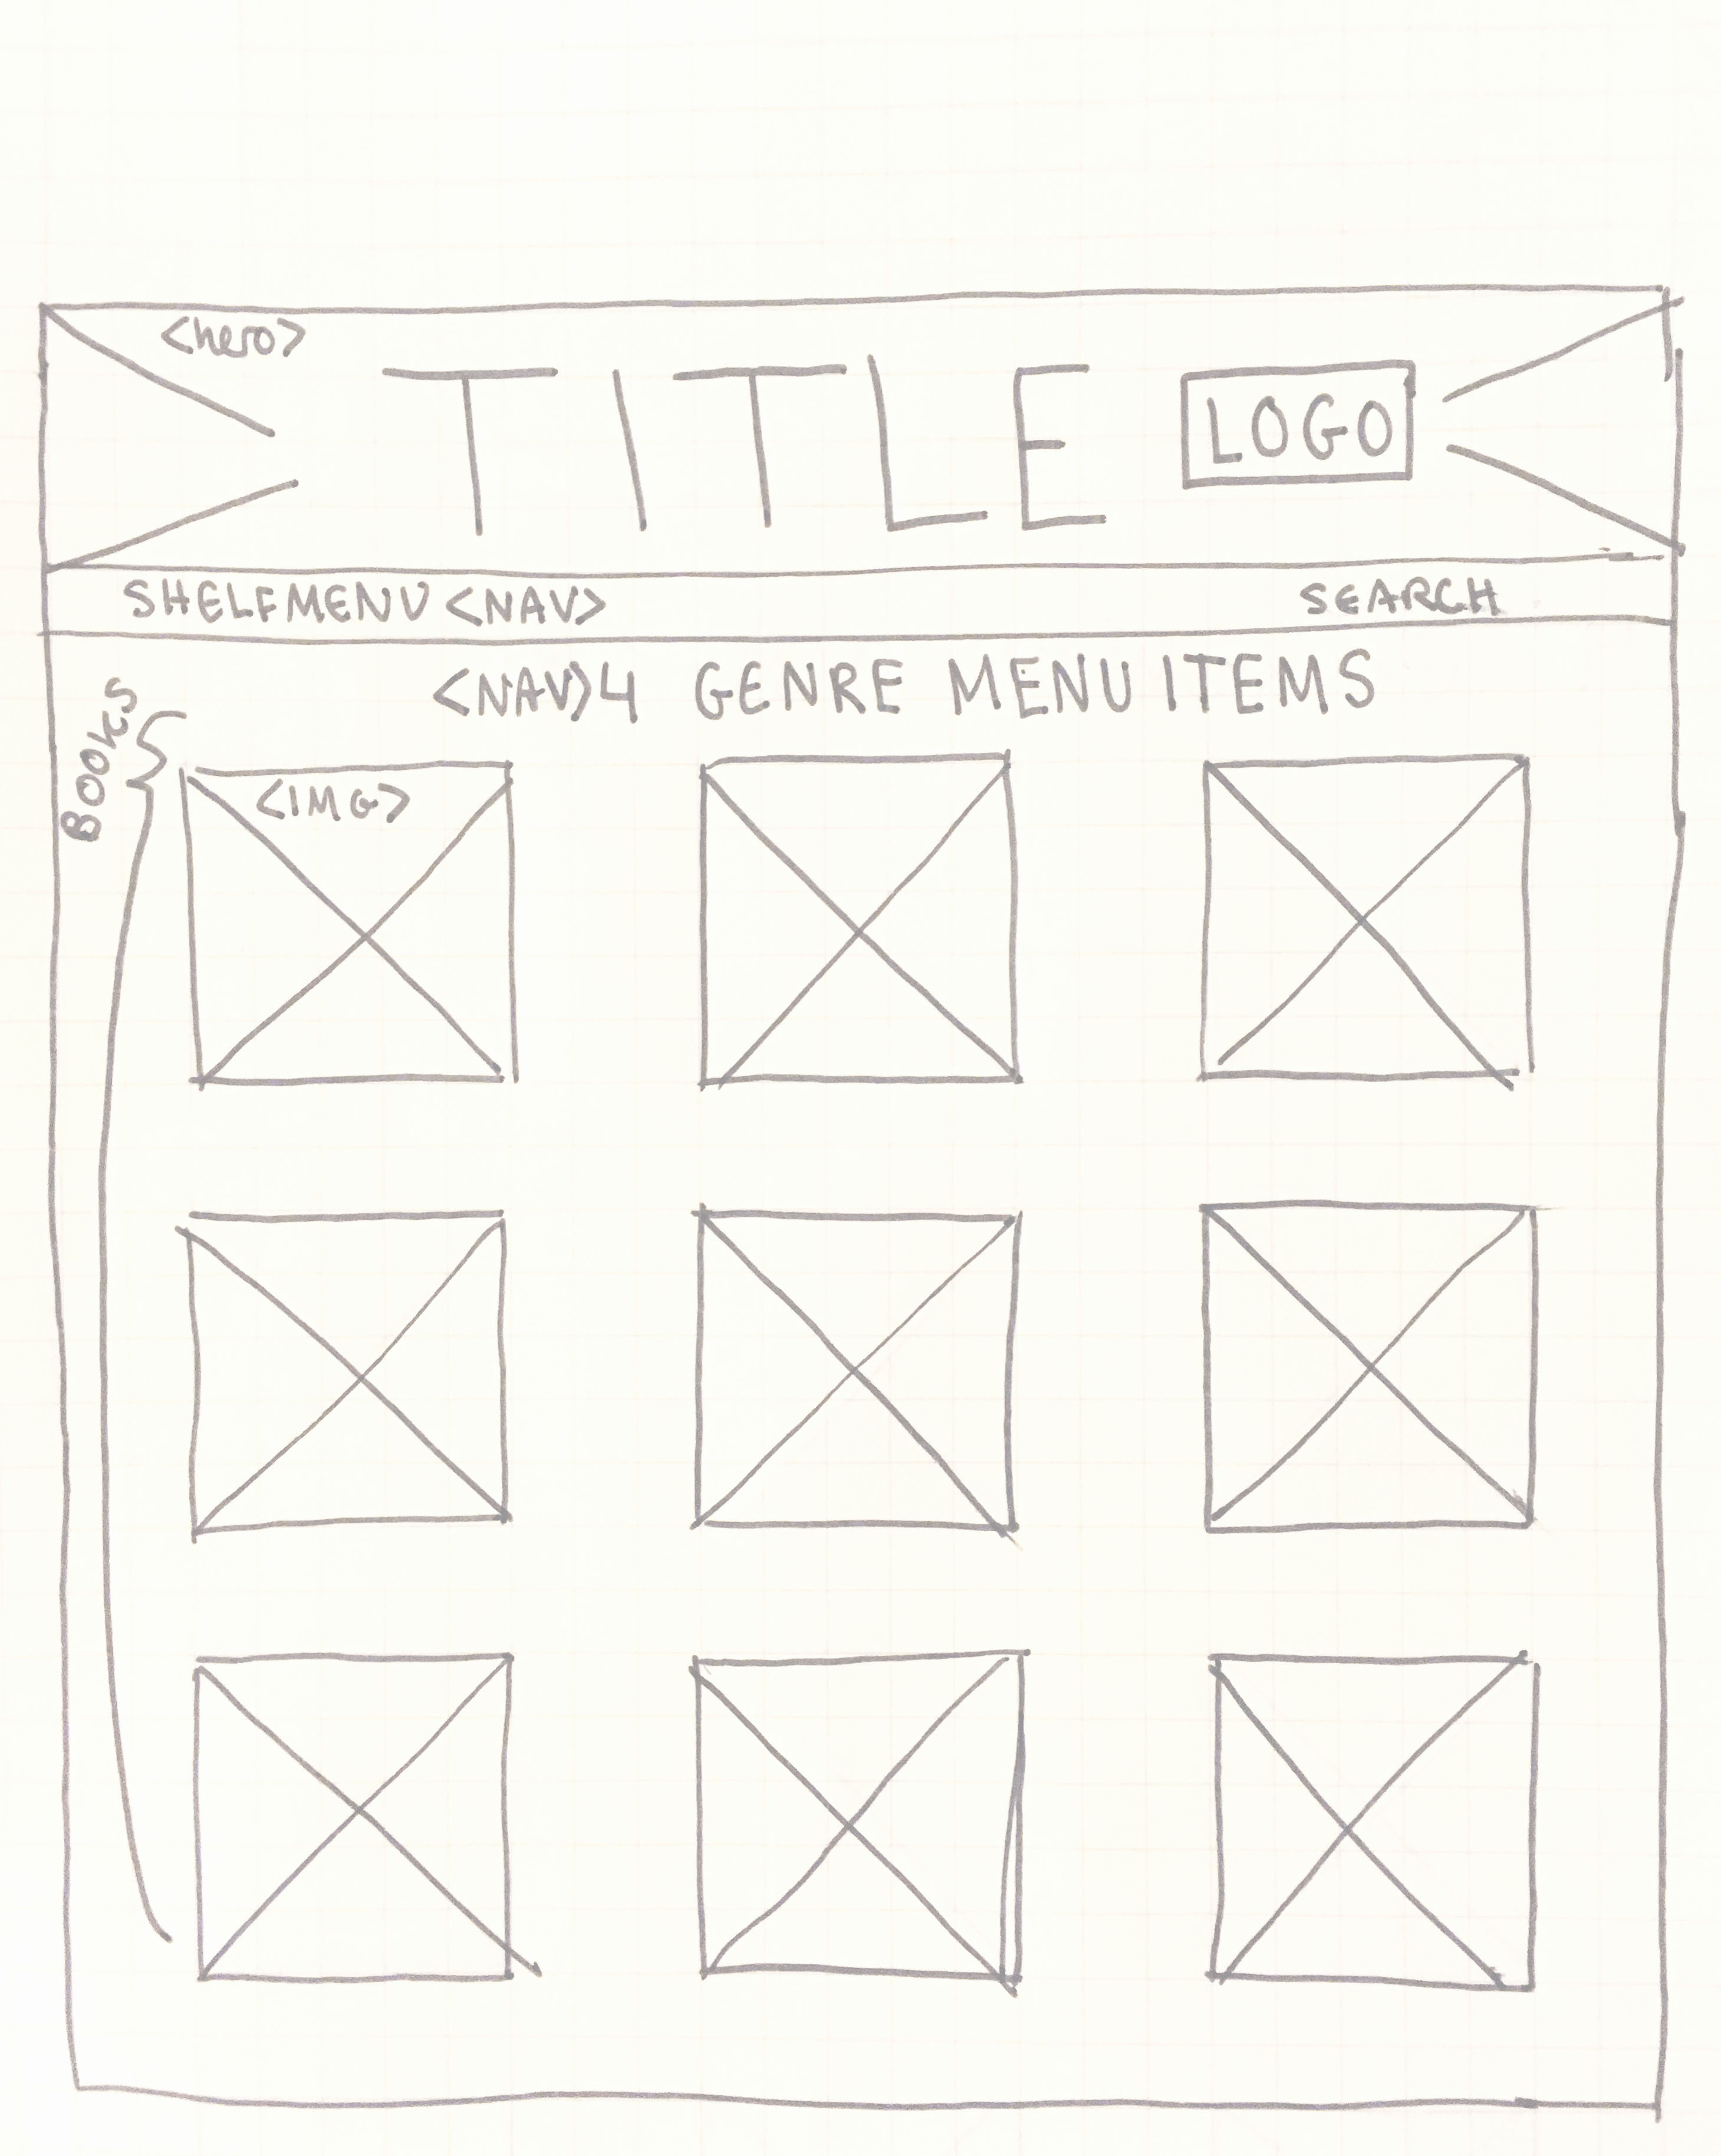 <hero>
TITLE
LOGO
SHELFMENU <NAV>
SEARCH
<NAV>4 GENRE MENU ITEMS
BOOKS
<IMG>